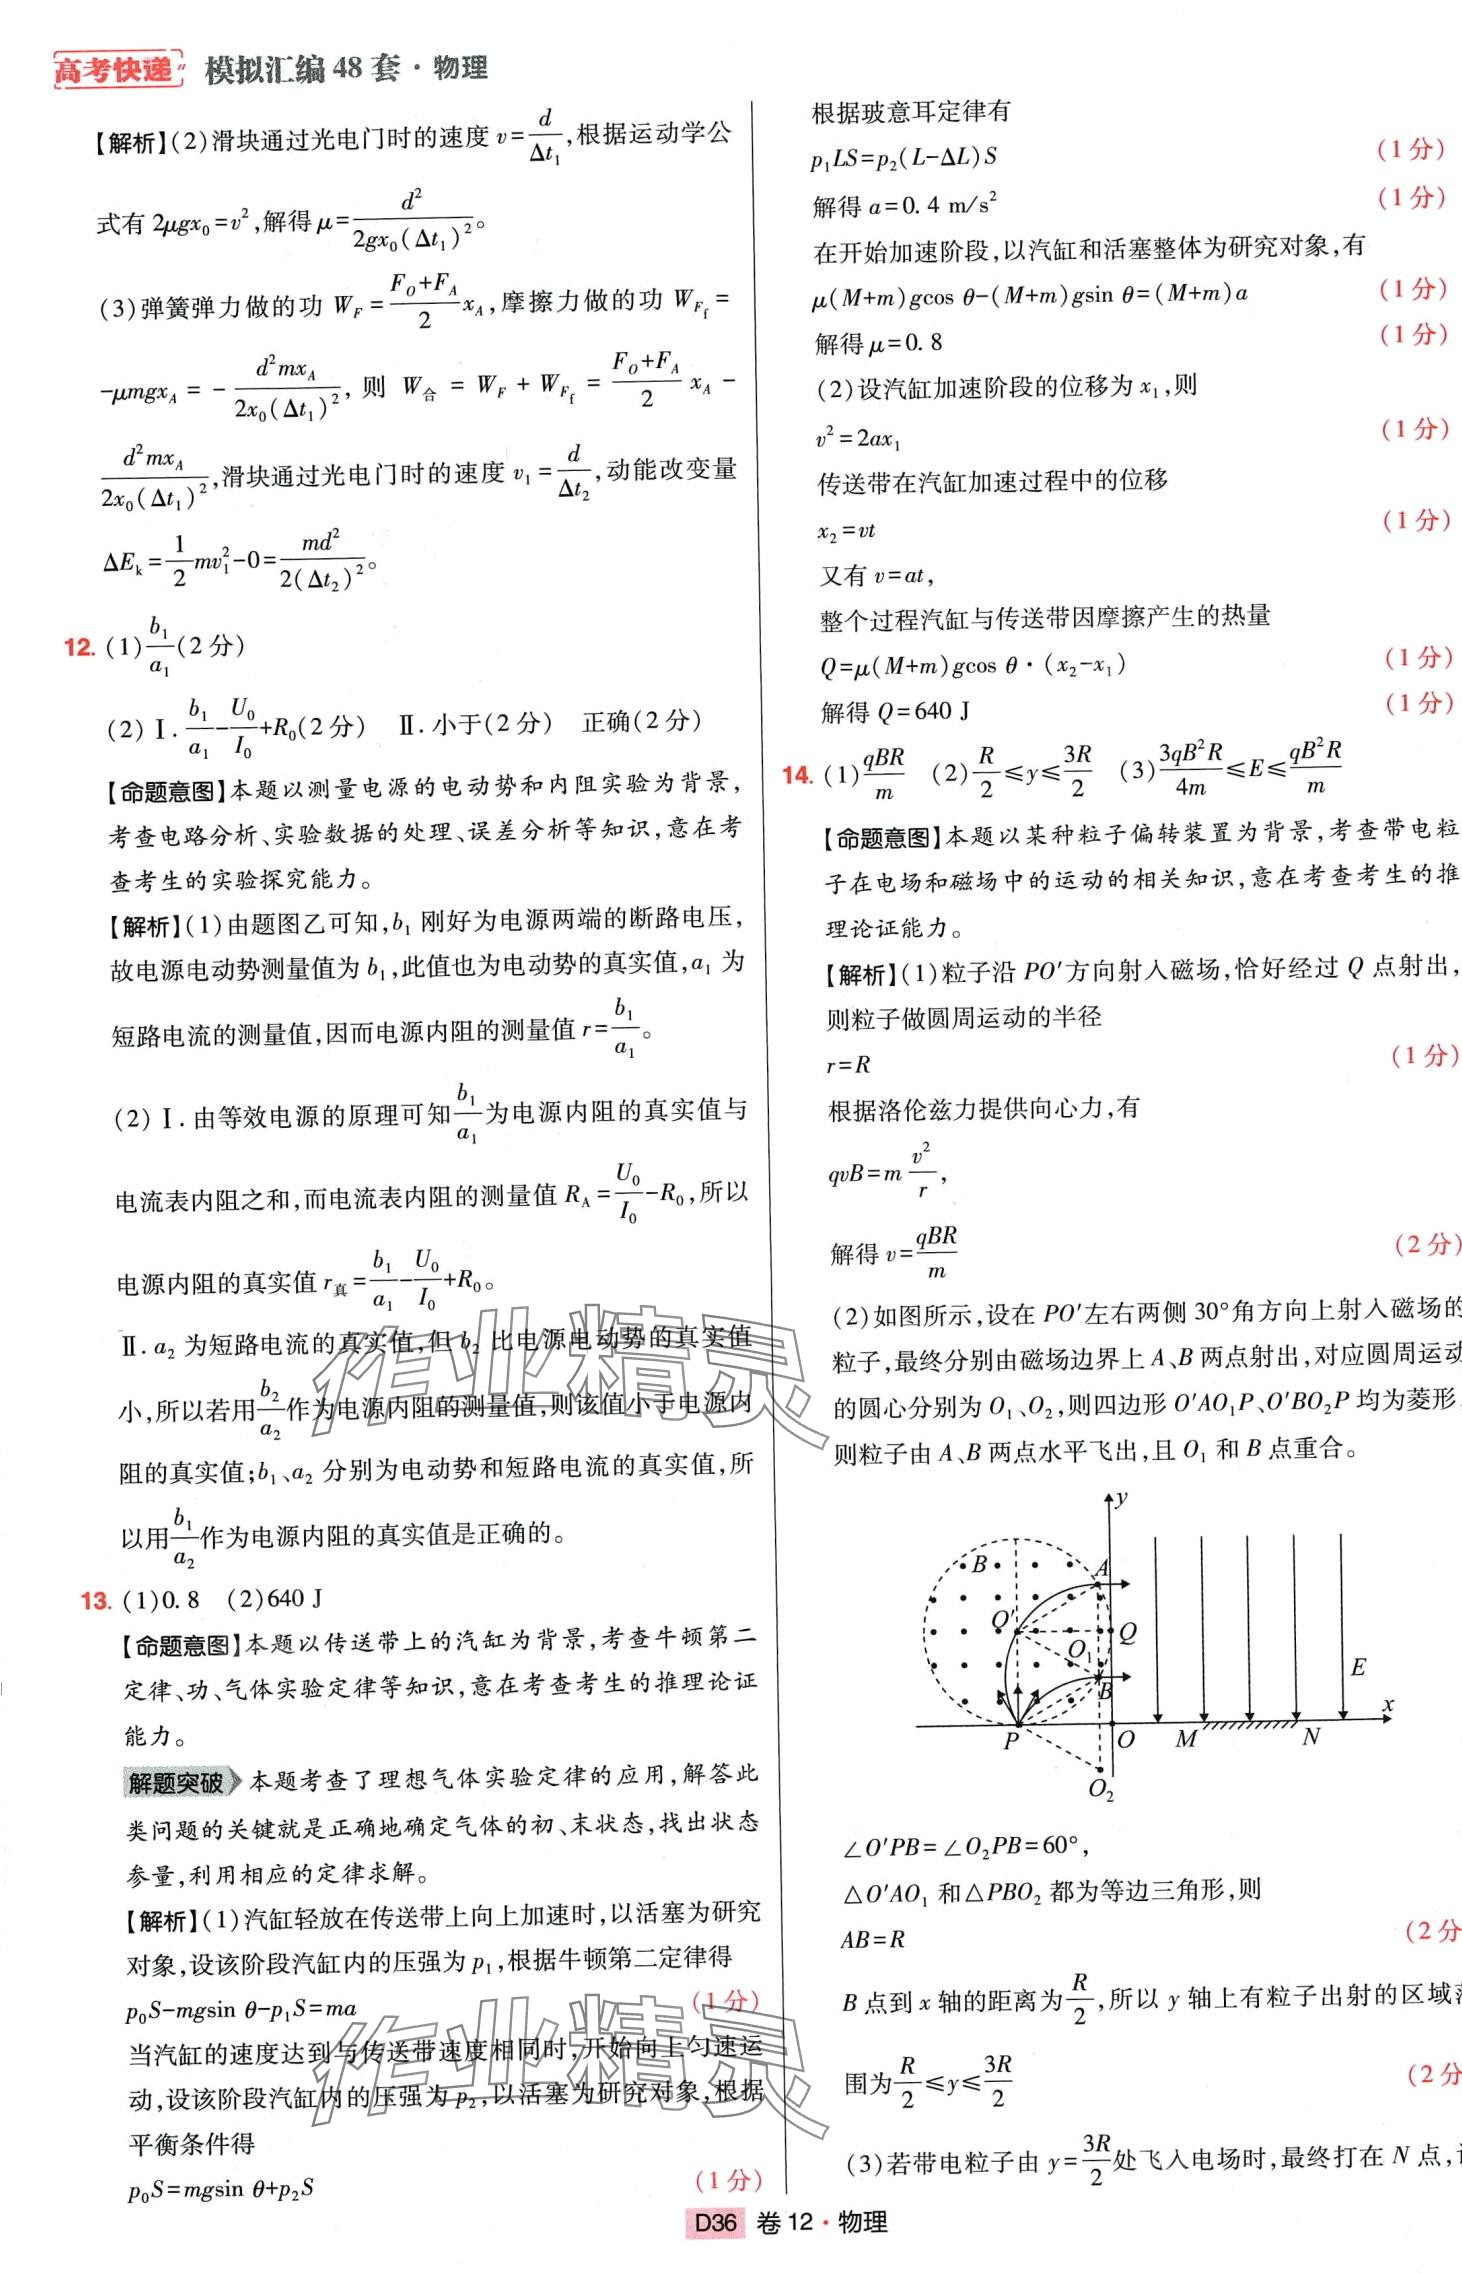 高考快递 模拟汇编48套·物理
【解析】(2)滑块通过光电门时的速度 v=d/Δt₁,根据运动学公
式有 2μgx₀=v²,解得 μ=d²/[2gx₀(Δt₁)²]。
(3)弹簧弹力做的功 W_F=(F_O+F_A)/2 x_A,摩擦力做的功 W_Ff=
-μmgx_A=-d²mx_A/[2x₀(Δt₁)²],则 W合=W_F+W_Ff=(F_O+F_A)/2 x_A-
d²mx_A/[2x₀(Δt₁)²],滑块通过光电门时的速度 v₁=d/Δt₂,动能改变量
ΔE_k=1/2 mv₁²-0=md²/[2(Δt₂)²]。
12. (1)b₁/a₁(2分)
(2)Ⅰ.b₁/a₁-U₀/I₀+R₀(2分) Ⅱ.小于(2分) 正确(2分)
【命题意图】本题以测量电源的电动势和内阻实验为背景,
考查电路分析、实验数据的处理、误差分析等知识,意在考
查考生的实验探究能力。
【解析】(1)由题图乙可知,b₁刚好为电源两端的断路电压,
故电源电动势测量值为b₁,此值也为电动势的真实值,a₁为
短路电流的测量值,因而电源内阻的测量值 r=b₁/a₁。
(2)Ⅰ.由等效电源的原理可知b₁/a₁为电源内阻的真实值与
电流表内阻之和,而电流表内阻的测量值 R_A=U₀/I₀-R₀,所以
电源内阻的真实值 r真=b₁/a₁-U₀/I₀+R₀。
Ⅱ.a₂为短路电流的真实值,但b₂比电源电动势的真实值
小,所以若用b₂/a₂作为电源内阻的测量值,则该值小于电源内
阻的真实值;b₁、a₂分别为电动势和短路电流的真实值,所
以用b₁/a₂作为电源内阻的真实值是正确的。
13. (1)0.8 (2)640 J
【命题意图】本题以传送带上的汽缸为背景,考查牛顿第二
定律、功、气体实验定律等知识,意在考查考生的推理论证
能力。
解题突破 本题考查了理想气体实验定律的应用,解答此
类问题的关键就是正确地确定气体的初、末状态,找出状态
参量,利用相应的定律求解。
【解析】(1)汽缸轻放在传送带上向上加速时,以活塞为研究
对象,设该阶段汽缸内的压强为p₁,根据牛顿第二定律得
p₀S-mgsin θ-p₁S=ma (1分)
当汽缸的速度达到与传送带速度相同时,开始向上匀速运
动,设该阶段汽缸内的压强为p₂,以活塞为研究对象,根据
平衡条件得
p₀S=mgsin θ+p₂S (1分)
根据玻意耳定律有
p₁LS=p₂(L-ΔL)S (1分)
解得 a=0.4 m/s² (1分)
在开始加速阶段,以汽缸和活塞整体为研究对象,有
μ(M+m)gcos θ-(M+m)gsin θ=(M+m)a (1分)
解得 μ=0.8 (1分)
(2)设汽缸加速阶段的位移为x₁,则
v²=2ax₁ (1分)
传送带在汽缸加速过程中的位移
x₂=vt (1分)
又有 v=at,
整个过程汽缸与传送带因摩擦产生的热量
Q=μ(M+m)gcos θ·(x₂-x₁) (1分)
解得 Q=640 J (1分)
14. (1)qBR/m (2)R/2≤y≤3R/2 (3)3qB²R/4m≤E≤qB²R/m
【命题意图】本题以某种粒子偏转装置为背景,考查带电粒
子在电场和磁场中的运动的相关知识,意在考查考生的推
理论证能力。
【解析】(1)粒子沿PO′方向射入磁场,恰好经过Q点射出,
则粒子做圆周运动的半径
r=R (1分)
根据洛伦兹力提供向心力,有
qvB=m v²/r,
解得 v=qBR/m (2分)
(2)如图所示,设在PO′左右两侧30°角方向上射入磁场的
粒子,最终分别由磁场边界上A、B两点射出,对应圆周运动
的圆心分别为O₁、O₂,则四边形O′AO₁P、O′BO₂P均为菱形,
则粒子由A、B两点水平飞出,且O₁和B点重合。
y
B A
O′ Q
O₁
B E
x
P O M N
O₂
∠O′PB=∠O₂PB=60°,
△O′AO₁和△PBO₂都为等边三角形,则
AB=R (2分
B点到x轴的距离为R/2,所以y轴上有粒子出射的区域范
围为R/2≤y≤3R/2 (2分
(3)若带电粒子由y=3R/2处飞入电场时,最终打在N点,
D36 卷12·物理
作业精灵
作业精灵